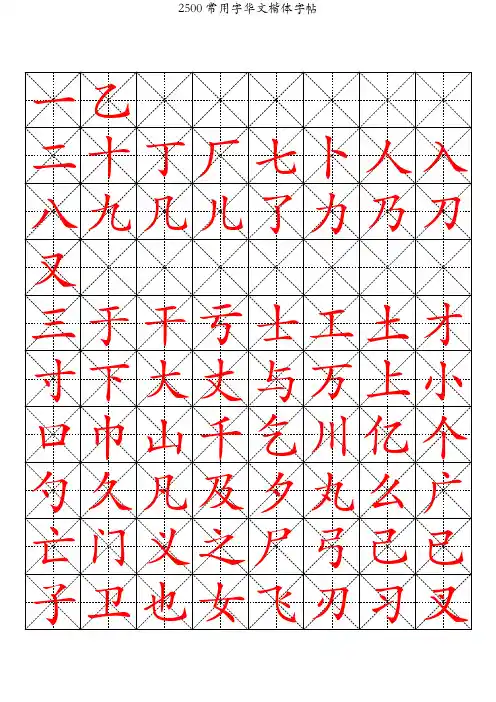 2500常用字华文楷体字帖
一乙
二十丁厂七卜人入
八九几儿了力乃刀
又
三于干亏士工土才
寸下大丈与万上小
口巾山千乞川亿个
勺久凡及夕丸么广
亡门义之尸弓己已
子卫也女飞刃习叉